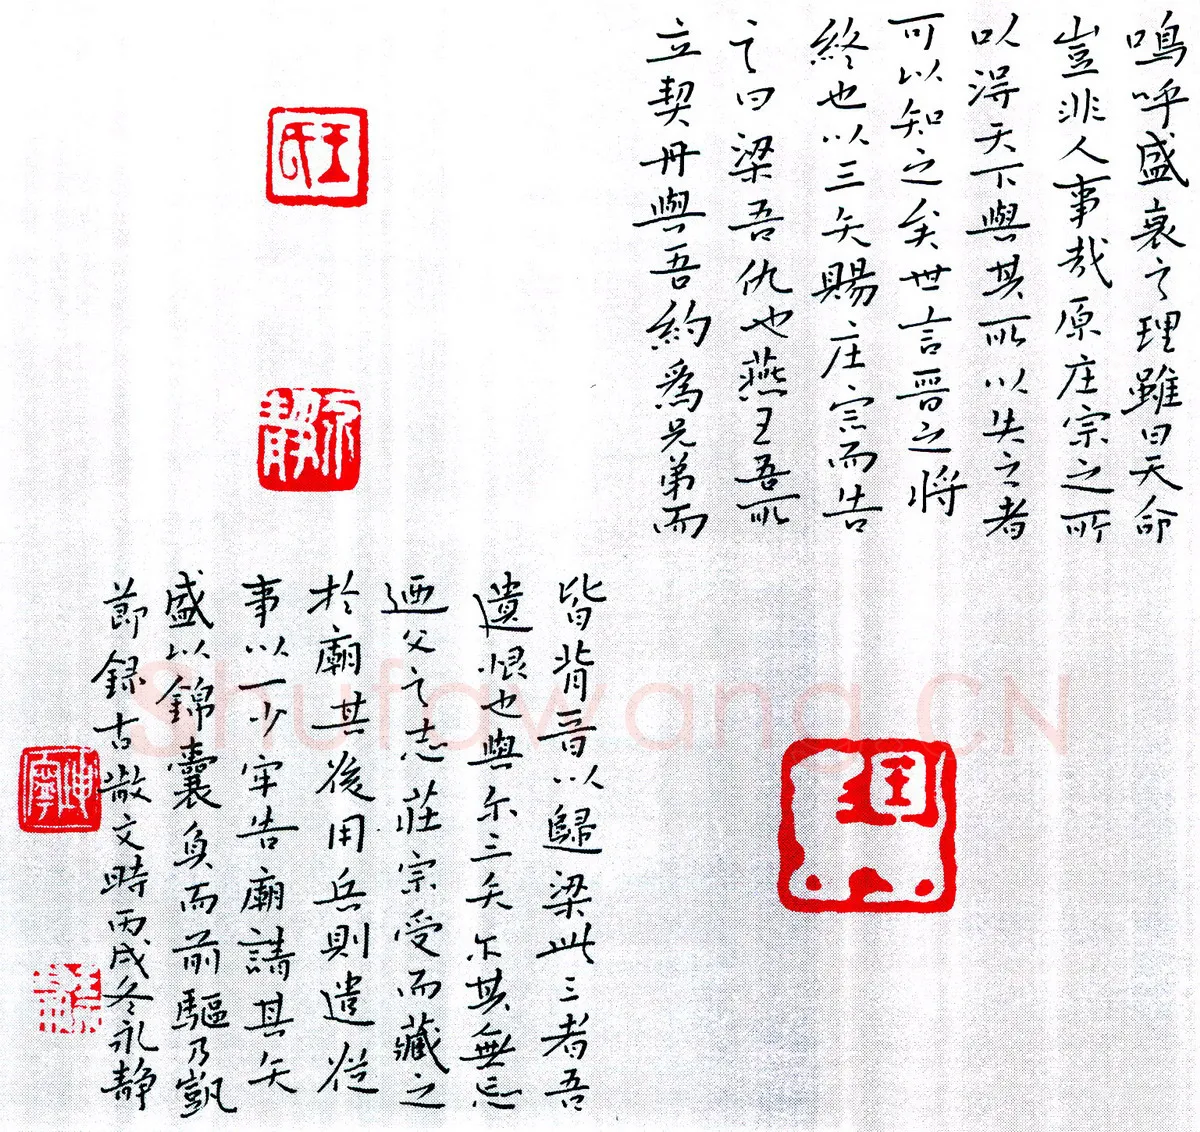 嗚呼盛衰之理雖曰天命
豈非人事哉原庄宗之所
以得天下與其所以失之者
可以知之矣世言晋之将
終也以三矢賜庄宗而告
之曰梁吾仇也燕王吾所
立契丹與吾約爲兄弟而
皆背晋以歸梁此三者吾
遺恨也與尔三矢尔其無忘
迺父之志莊宗受而藏之
於廟其後用兵則遣従
事以一少牢告廟請其矢
盛以錦囊負而前驅乃凱
節録古散文時丙戌冬永静
王氏
永靜
Shufawang.CN